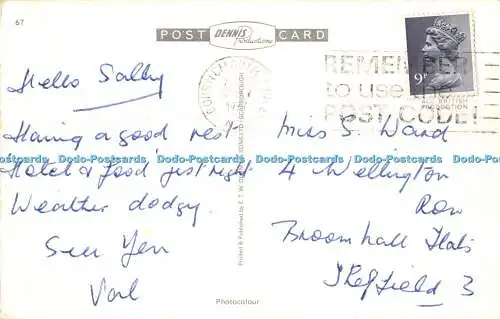 67
POST DENNIS Productions CARD
BOURNEMOUTH
9P
REMEMBER
to use the
POST CODE!
ALL BRITISH
PRODUCTION
Hello Sally
Having a good rest
Hotel & food just right
Weather dodgy.
See Yer
Val
Miss S. Ward
4 Wellington
Row
Broomhall Flats
Sheffield 3
Dodo-Postcards Dodo-Postcards Dodo-Postcards Dodo-Postcards Dodo-Postcards Dodo-Postcards
Printed & Published by E. T. W. DENNIS & SONS LTD SCARBOROUGH
Photocolour